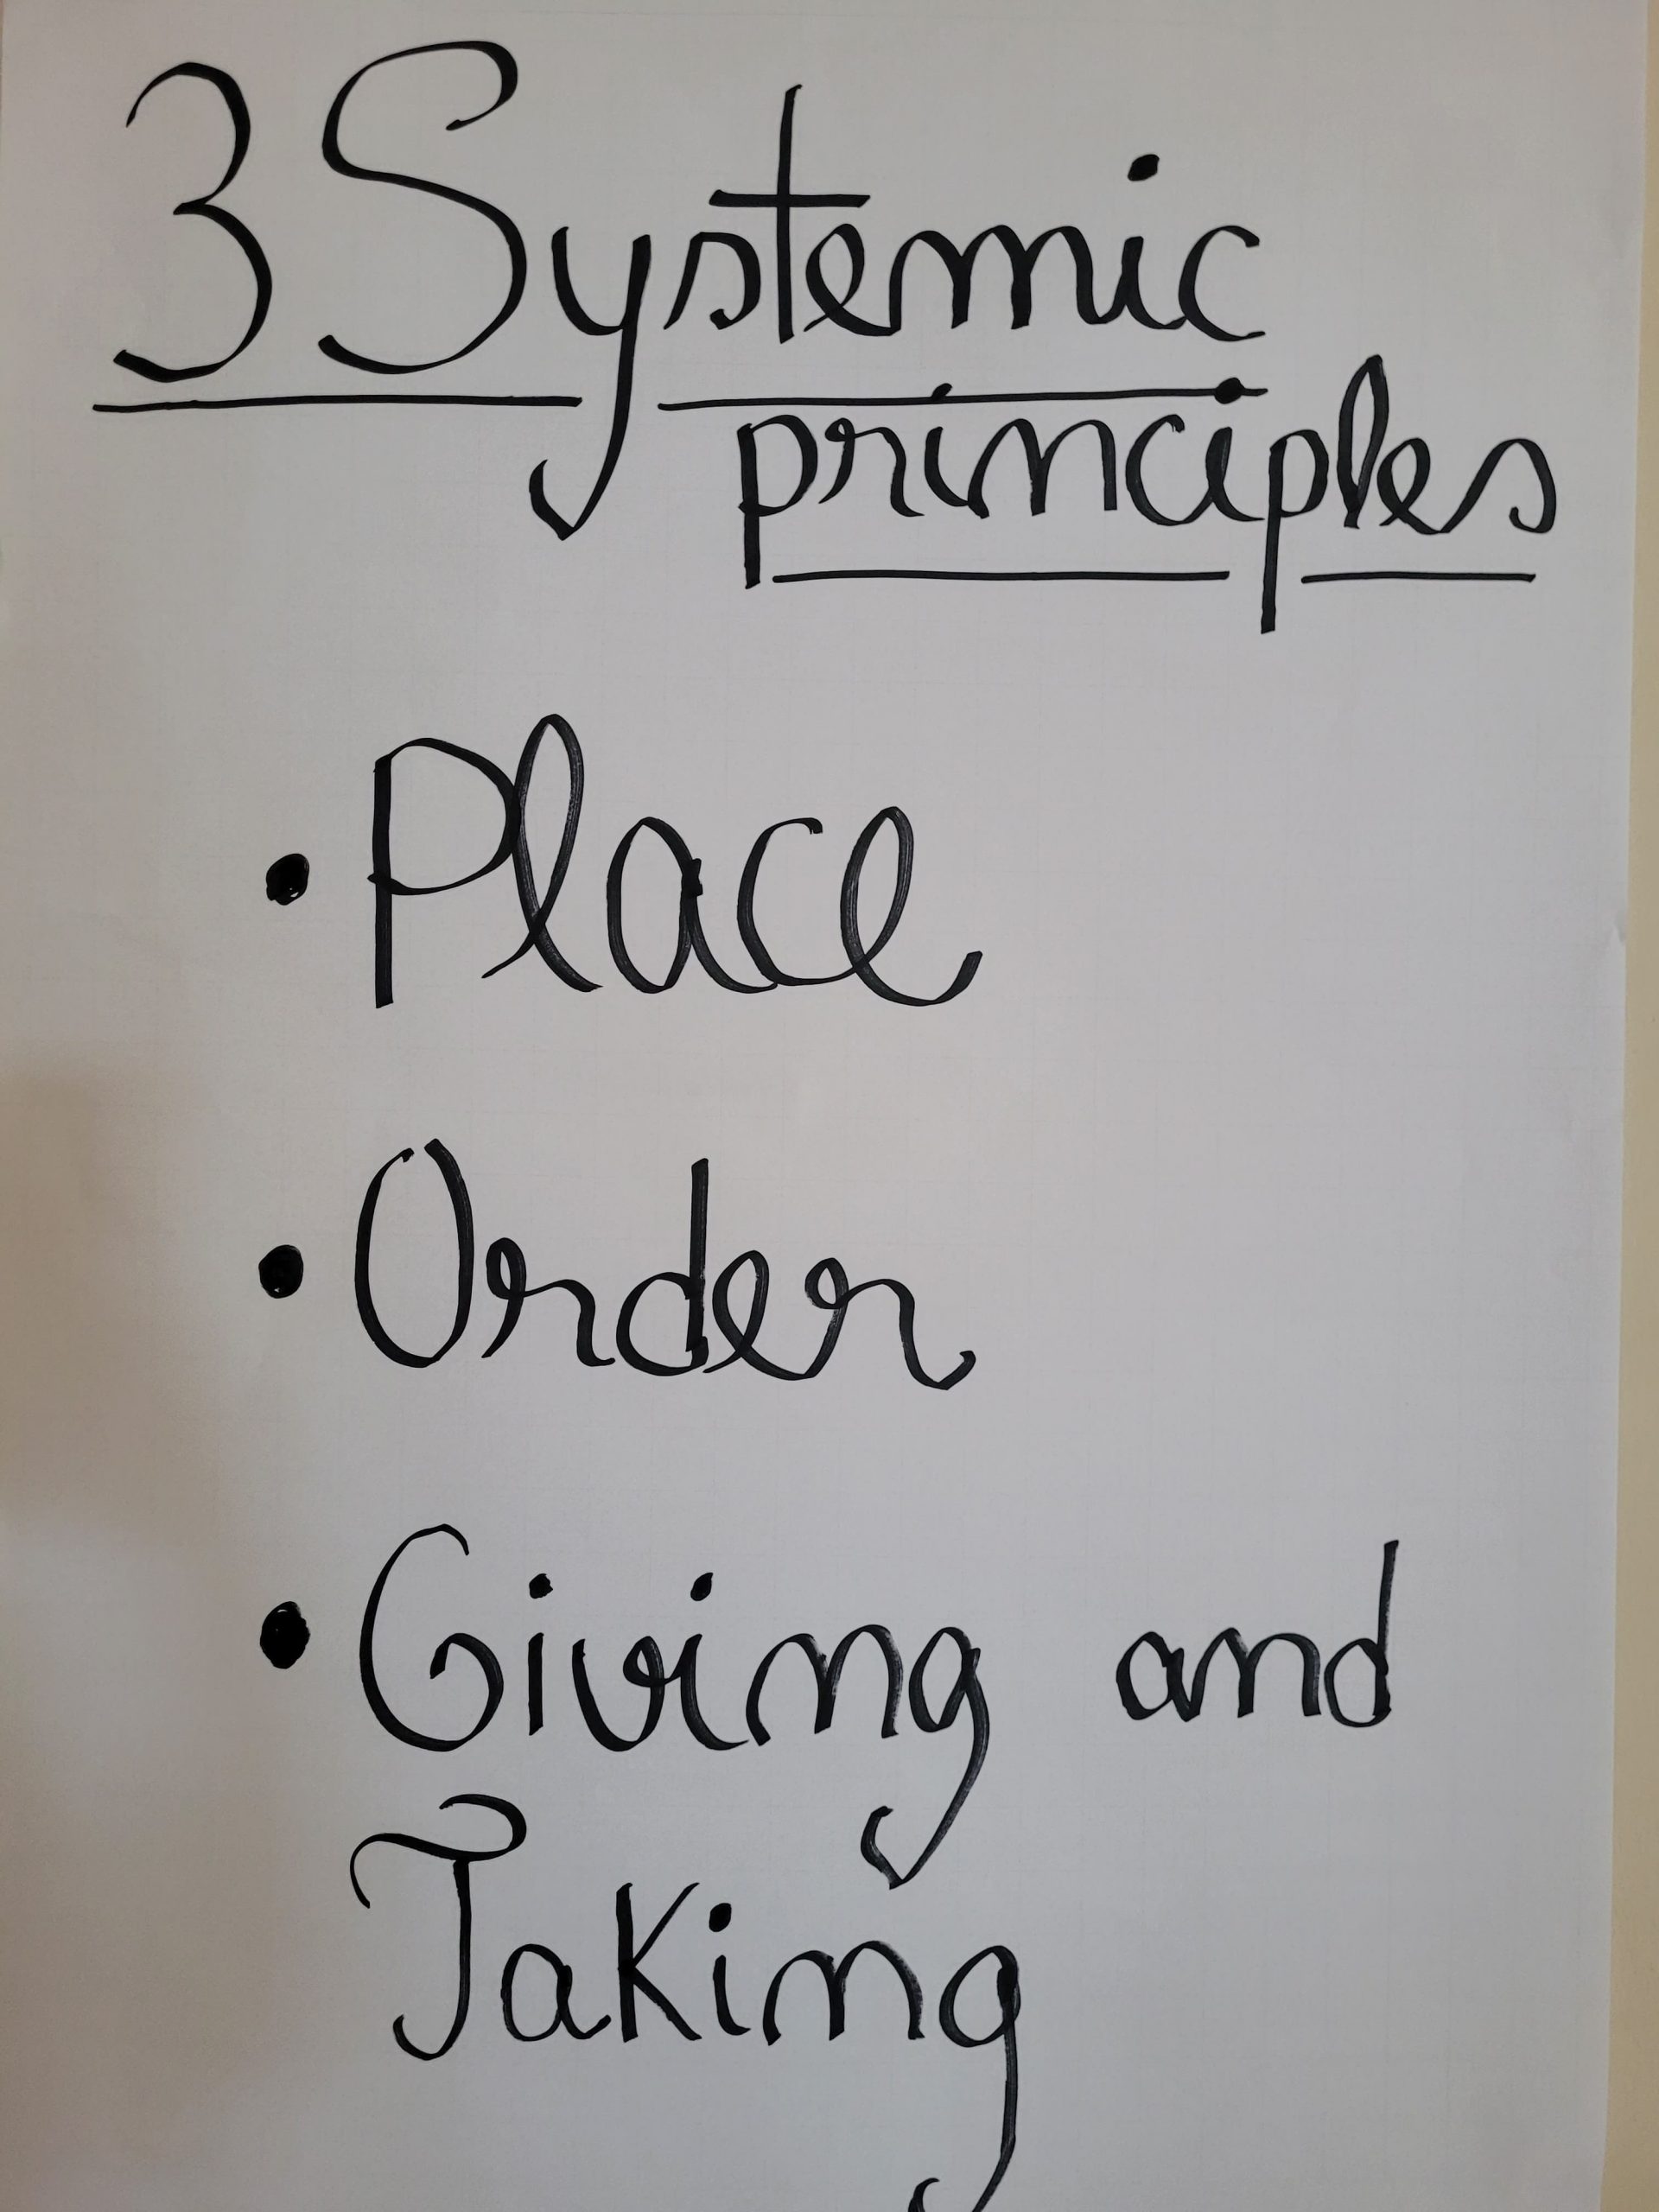 3 Systemic
principles
• Place
• Order
• Giving and
Taking